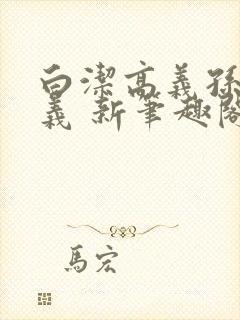 白潔高義孫
義 新筆趣閣
馬宏